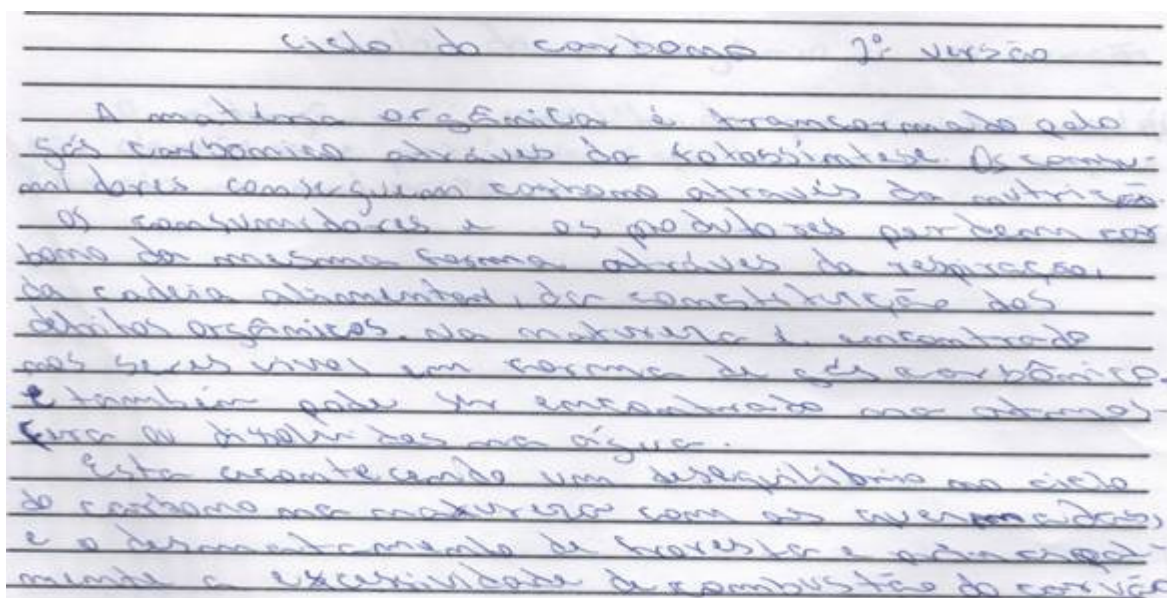 ciclo do carbono 2ª versão
A matéria orgânica é trancormado pelo
gás carbonico atraves da fotossíntese. Os consu-
midores conseguem carbono através da nutrição
os consumidores e os produtores perdem car
bono da mesma forma atráves da respiração,
da cadeia alimentar, da constituição dos
detritos orgânicos. Na natureza é encontrado
nos seres vivos em forma de gás carbônico
e também pode ser encontrado na atmos-
fera ou disolvidos na água.
Esta acontecendo um desequilibrio no ciclo
do carbono na natureza com as queimadas,
e o desmatamento de floresta e principal-
mente a excesividade de combustão do carvão